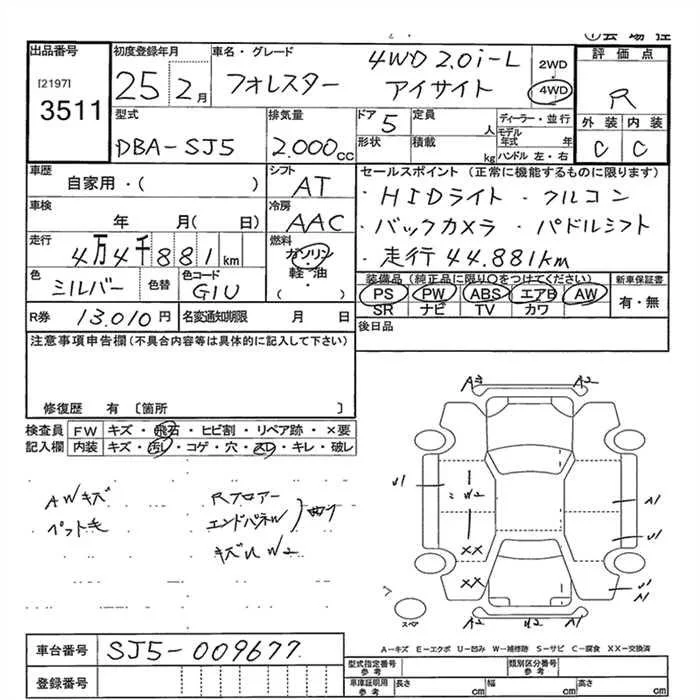 ①会場控
出品番号
[2197]
3511
初度登録年月
25 2月
車名・グレード
4WD 2.0i-L
フォレスター アイサイト
2WD
4WD
評価点
R
外装 内装
C C
型式
DBA-SJ5
排気量
2.000cc
ドア 5
形状
定員 人
積載 kg
ディーラー・並行
モデル年式 年
ハンドル 左・右
車歴
自家用・( )
シフト
AT
車検
年 月( 日)
冷房
AAC
走行
4万4千881km
燃料
ガソリン
軽油
・( )
色
シルバー
色替
色コード
G1U
R券 13.010円
名変通知期限 月 日
セールスポイント(正常に機能するものに限ります)
・HIDライト ・フルコン
・バックカメラ ・パドルシフト
・走行44.881km
装備品(純正品に限り○をつけてください)
PS PW ABS エアB AW
SR ナビ TV カワ
新車保証書
有・無
後日品
注意事項申告欄(不具合内容等は具体的に記入して下さい)
修復歴 有 〔箇所 〕
検査員記入欄
FW キズ・飛石・ヒビ割・リペア跡・×要
内装 キズ・汚レ・コゲ・穴・スレ・キレ・破レ
AWキズ
ペット毛
Rフロアー
エンドパネW
曲り
キズU W2
A2 A2
U1 W2 A1
U1
XX
XX U1
A1
スペア
A2 W2 A2
A-キズ E-エクボ U-凹み W-補修跡 S-サビ C-腐食 XX-交換済
車台番号 SJ5-009677
登録番号
型式指定番号 参考
類別区分番号 参考
車庫証明用 参考
長さ cm 幅 cm 高さ cm